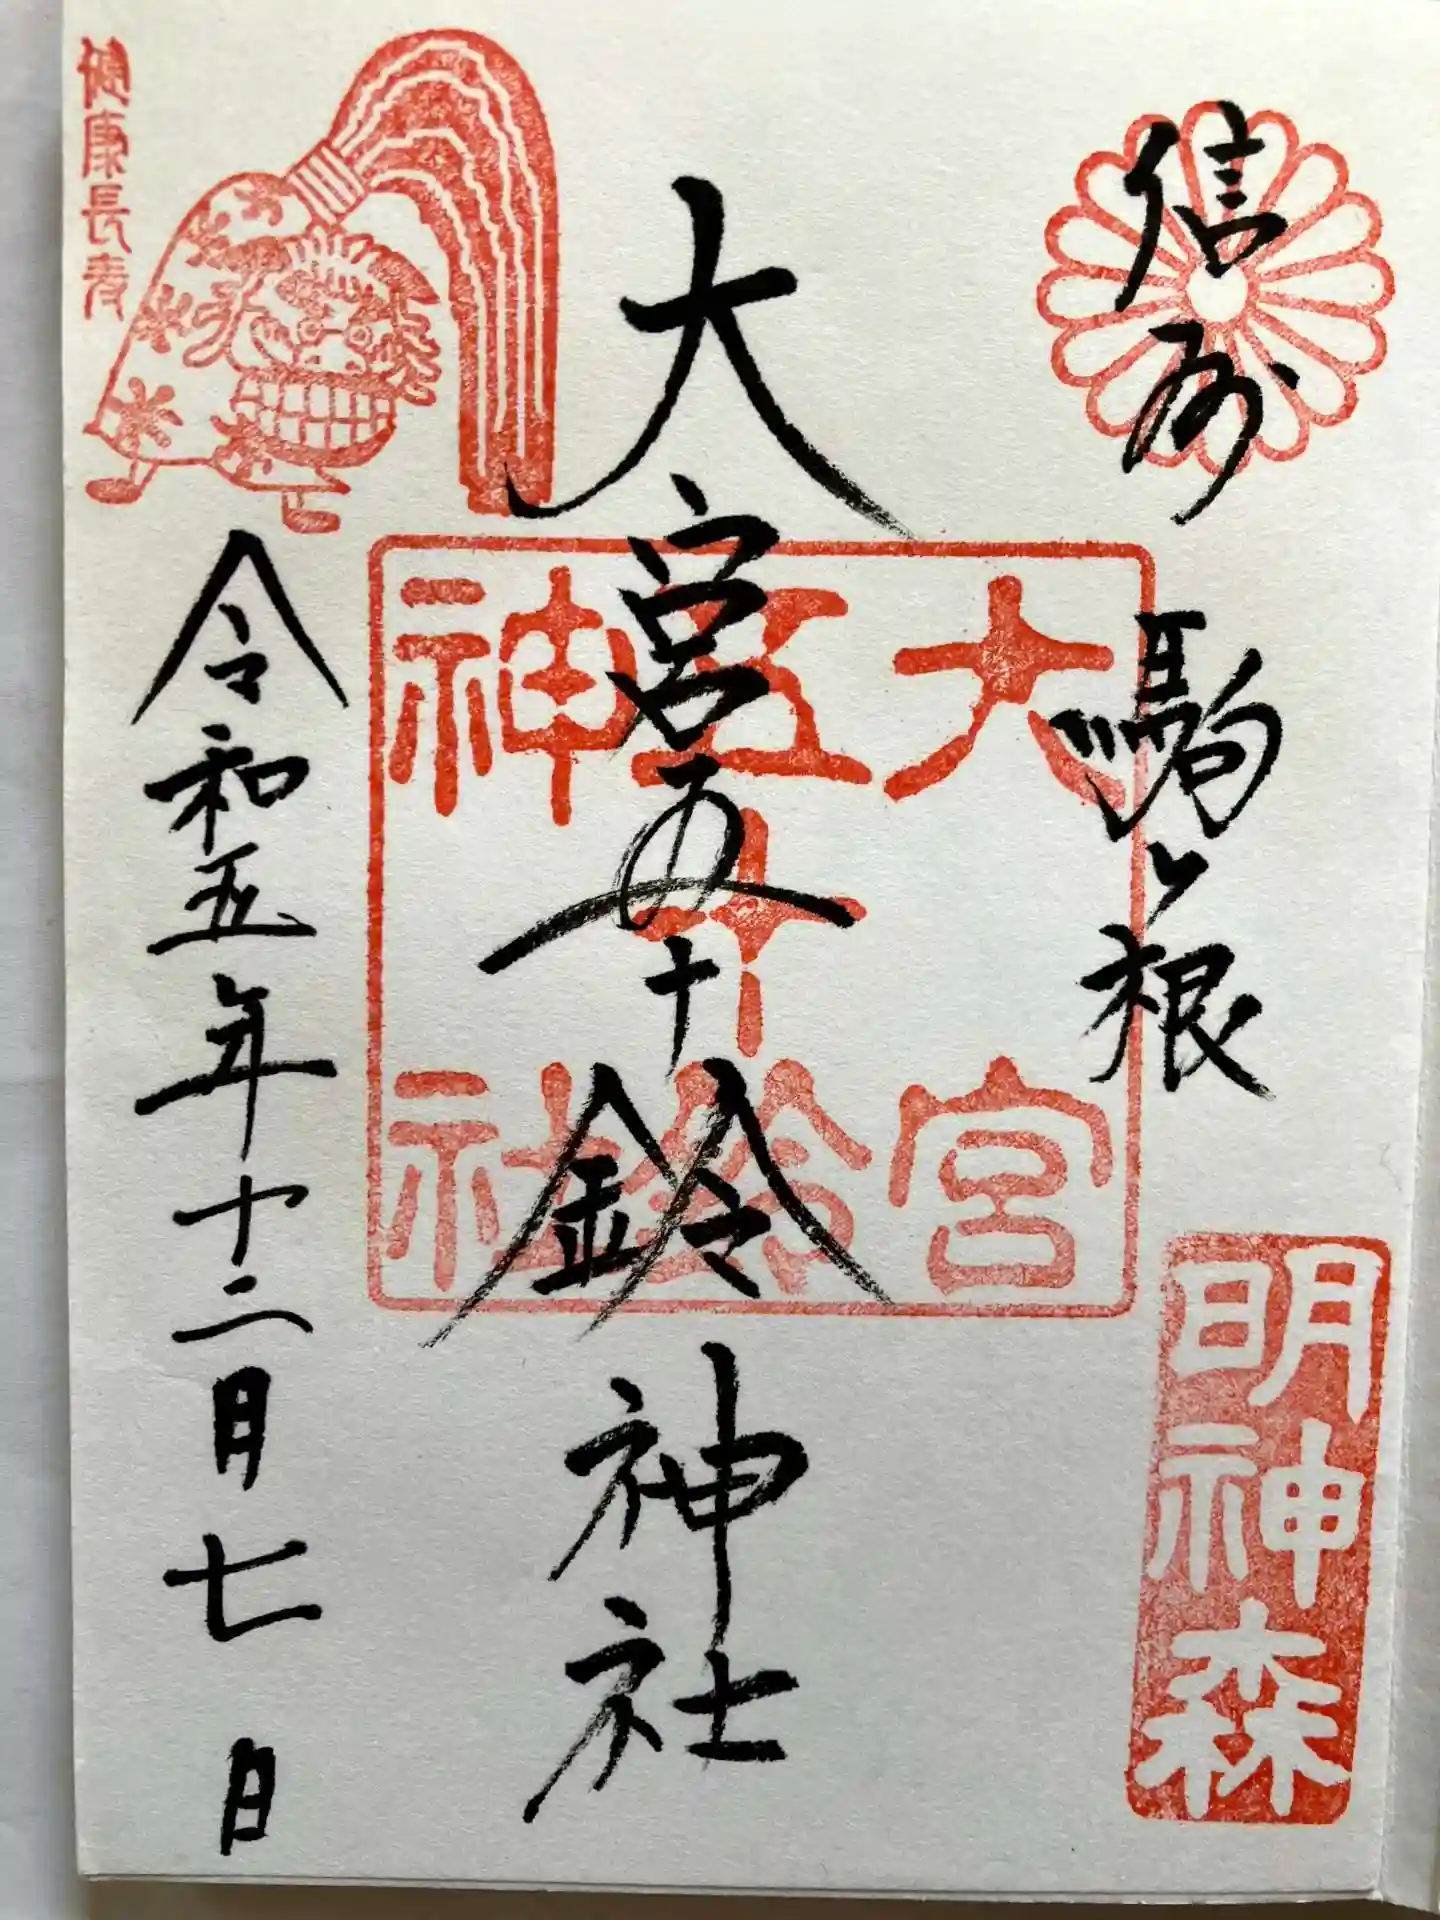 信州 駒ヶ根
明神森
大宮五十鈴神社
大宮
五十鈴
神社
令和五年十二月七日
健康長寿